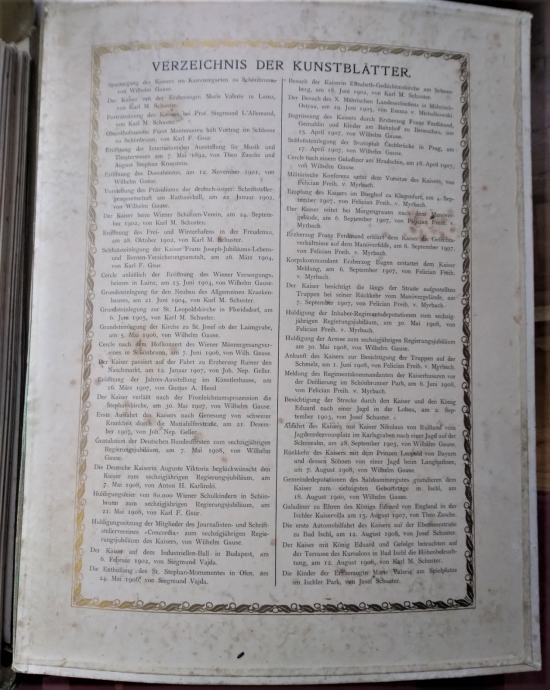 VERZEICHNIS DER KUNSTBLÄTTER.
Spaziergang des Kaisers im Kammergarten zu Schönbrunn,
von Wilhelm Gause.
Der Kaiser mit der Erzherzogin Marie Valerie in Lainz,
von Karl M. Schuster.
Porträtsitzung des Kaisers bei Prof. Siegmund L'Allemand,
von Karl M. Schuster.
Obersthofmeister Fürst Montenuovo hält Vortrag im Schlosse
zu Schönbrunn, von Karl F. Gsur.
Eröffnung der Internationalen Ausstellung für Musik und
Theaterwesen am 7. Mai 1892, von Theo Zasche und
August Stephan Kronstein.
Eröffnung des Dorotheums, am 12. November 1901, von
Wilhelm Gause.
Vorstellung des Präsidiums der deutsch-österr. Schriftsteller-
genossenschaft am Rathausball, am 22. Januar 1902,
von Wilhelm Gause.
Der Kaiser beim Wiener Schützen-Verein, am 24. Septem-
ber 1902, von Karl M. Schuster.
Eröffnung des Frei- und Winterhafens in der Freudenau,
am 28. Oktober 1902, von Karl M. Schuster.
Schlußsteinlegung der Kaiser Franz Joseph-Jubiläums-Lebens-
und Renten-Versicherungsanstalt, am 26. März 1904,
von Karl F. Gsur.
Cercle anläßlich der Eröffnung des Wiener Versorgungs-
heimes in Lainz, am 15. Juni 1904, von Wilhelm Gause.
Grundsteinlegung für den Neubau des Allgemeinen Kranken-
hauses, am 21. Juni 1904, von Karl M. Schuster.
Grundsteinlegung zur St. Leopoldskirche in Floridsdorf, am
6. Juni 1905, von Karl M. Schuster.
Grundsteinlegung der Kirche zu St. Josef ob der Laimgrube,
am 5. Mai 1906, von Wilhelm Gause.
Cercle nach dem Hofkonzert des Wiener Männergesangver-
eines in Schönbrunn, am 7. Juni 1906, von Wilh. Gause.
Der Kaiser passiert auf der Fahrt zu Erzherzog Rainer den
Naschmarkt, am 12. Januar 1907, von Joh. Nep. Geller.
Eröffnung der Jahres-Ausstellung im Künstlerhause, am
16. März 1907, von Gustav A. Hessl.
Der Kaiser verläßt nach der Fronleichnamsprozession die
Stephanskirche, am 30. Mai 1907, von Wilhelm Gause.
Erste Ausfahrt des Kaisers nach Genesung von schwerer
Krankheit durch die Mariahilferstraße, am 21. Dezem-
ber 1907, von Joh. Nep. Geller.
Gratulation der Deutschen Bundesfürsten zum sechzigjährigen
Regierungsjubiläum, am 7. Mai 1908, von Wilhelm
Gause.
Die Deutsche Kaiserin Auguste Viktoria beglückwünscht den
Kaiser zum sechzigjährigen Regierungsjubiläum, am
7. Mai 1908, von Anton H. Karlinski.
Huldigungsfeier von 80.000 Wiener Schulkindern in Schön-
brunn zum sechzigjährigen Regierungsjubiläum, am
21. Mai 1908, von Karl F. Gsur.
Huldigungssitzung der Mitglieder des Journalisten- und Schrift-
stellervereines «Concordia» zum sechzigjährigen Regie-
rungsjubiläum des Kaisers, von Wilhelm Gause.
Der Kaiser auf dem Industriellen-Ball in Budapest, am
6. Februar 1902, von Siegmund Vajda.
Die Enthüllung des St. Stephan-Monumentes in Ofen, am
24. Mai 1906, von Siegmund Vajda.
Besuch der Kaiserin Elisabeth-Gedächtniskirche am Schnee-
berg, am 18. Juni 1902, von Karl M. Schuster.
Der Besuch des X. Mährischen Landesschießens in Mährisch-
Ostrau, am 29. Juni 1905, von Emma v. Michalkowski
Begrüssung des Kaisers durch Erzherzog Franz Ferdinand,
Gemahlin und Kinder am Bahnhof zu Beneschau, am
15. April 1907, von Wilhelm Gause.
Schlußsteinlegung der Svatopluk Čechbrücke in Prag, am
17. April 1907, von Wilhelm Gause.
Cercle nach einem Galadiner am Hradschin, am 18. April 1907,
von Wilhelm Gause.
Militärische Konferenz unter dem Vorsitze des Kaisers, von
Felician Freih. v. Myrbach.
Empfang des Kaisers im Burghof zu Klagenfurt, am 4. Sep-
tember 1907, von Felician Freih. v. Myrbach.
Der Kaiser reitet bei Morgengrauen nach dem Manöver-
gelände, am 6. September 1907, von Felician Freih. v.
Myrbach.
Erzherzog Franz Ferdinand erklärt dem Kaiser die Gefechts-
verhältnisse auf dem Manöverfelde, am 6. September 1907,
von Felician Freih. v. Myrbach.
Korpskommandant Erzherzog Eugen erstattet dem Kaiser
Meldung, am 6. September 1907, von Felician Freih.
v. Myrbach.
Der Kaiser besichtigt die längs der Straße aufgestellten
Truppen bei seiner Rückkehr vom Manövergelände, am
7. September 1907, von Felician Freih. v. Myrbach.
Huldigung der Inhaber-Regimentsdeputationen zum sechzig-
jährigen Regierungsjubiläum, am 30. Mai 1908, von
Felician Freih. v. Myrbach.
Huldigung der Armee zum sechzigjährigen Regierungsjubiläum
am 30. Mai 1908, von Wilhelm Gause.
Ankunft des Kaisers zur Besichtigung der Truppen auf der
Schmelz, am 1. Juni 1908, von Felician Freih. v. Myrbach.
Meldung des Regimentskommandanten der Kaiserhusaren vor
der Defilierung im Schönbrunner Park, am 6. Juni 1908,
von Felician Freih. v. Myrbach.
Besichtigung der Strecke durch den Kaiser und den König
Eduard nach einer Jagd in der Lobau, am 2. Sep-
tember 1903, von Josef Schuster.
Abfahrt des Kaisers mit Kaiser Nikolaus von Rußland vom
Jagdrendezvousplatz im Karlsgraben nach einer Jagd auf der
Schneealm, am 28. September 1903, von Wilhelm Gause.
Rückkehr des Kaisers mit dem Prinzen Leopold von Bayern
und dessen Söhnen von einer Jagd beim Langbathsee,
am 7. August 1908, von Wilhelm Gause.
Gemeindedeputationen des Salzkammergutes gratulieren dem
Kaiser zum siebzigsten Geburtstage in Ischl, am
18. August 1900, von Wilhelm Gause.
Galadiner zu Ehren des Königs Eduard von England in der
Ischler Kaiservilla am 15. August 1907, von Theo Zasche.
Die erste Automobilfahrt des Kaisers auf der Ebenseerstraße
zu Bad Ischl, am 12. August 1908, von Josef Schuster.
Der Kaiser mit König Eduard und Gefolge betrachten auf
der Terrasse des Kursalons in Bad Ischl die Höhenbeleuch-
tung, am 12. August 1908, von Karl M. Schuster.
Die Kinder der Erzherzogin Marie Valerie am Spielplatze
im Ischler Park, von Josef Schuster.